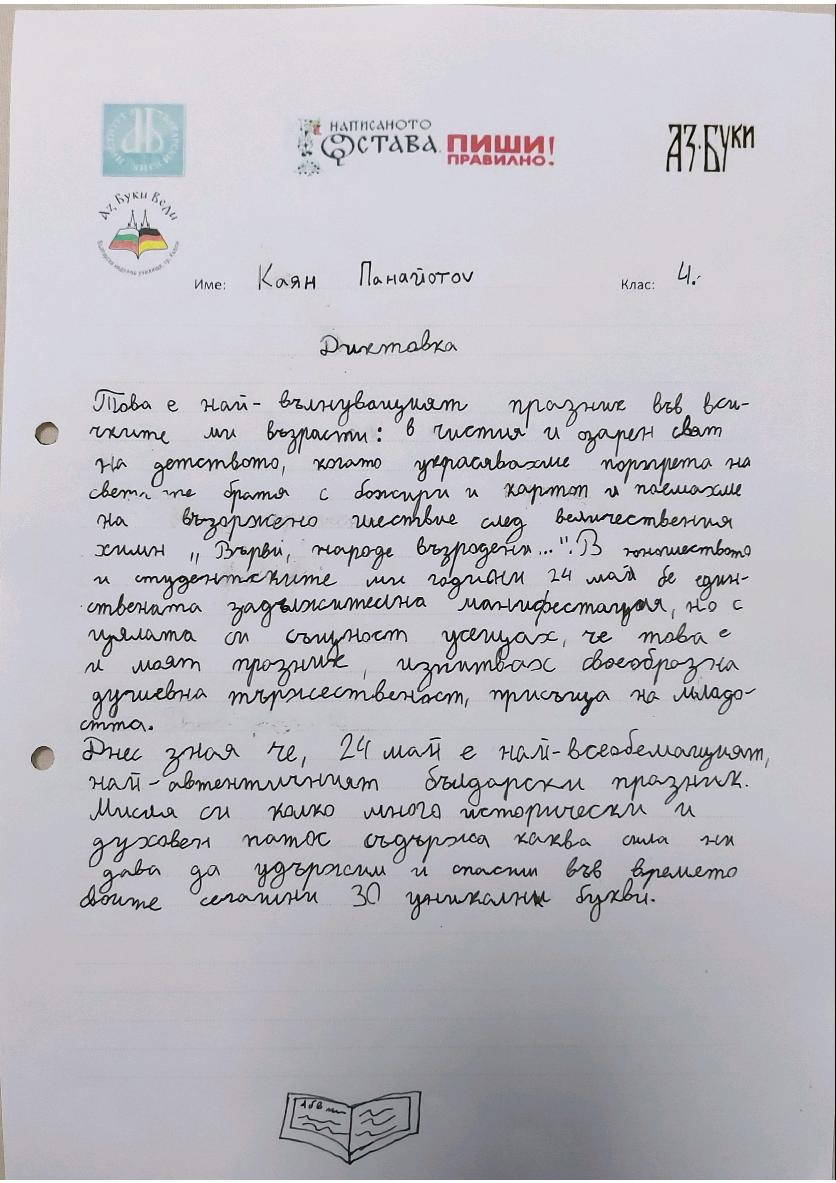 НАПИСАНОТО
ОСТАВА. ПИШИ!
ПРАВИЛНО!
АЗ·БУКИ
Аз Буки Веди
Име: Каян Панайотов Клас: 4.
Диктовка
Това е най-вълнуващият празник във вси-
чките ми възрасти: в чистия и озарен свят
на детството, когато украсявахме портрета на
светите братя с божири и картоп и поемахме
на възоржено шествие след величествения
химн „Върви, народе възродени...". В юношеството
и студентските ми години 24 май бе един-
ствената задължителна манифестация, но с
цялата си същност усещах, че това е
и моят празник, изпитвах своеобразна
душевна тържественост, присъща на младо-
стта.
Днес зная че, 24 май е най-всеобемащият,
най-автентичният български празник.
Мисля си колко много исторически и
духовен патос съдържа каква сила ни
дава да удържим и спасим във времето
своите сегашни 30 уникални букви.